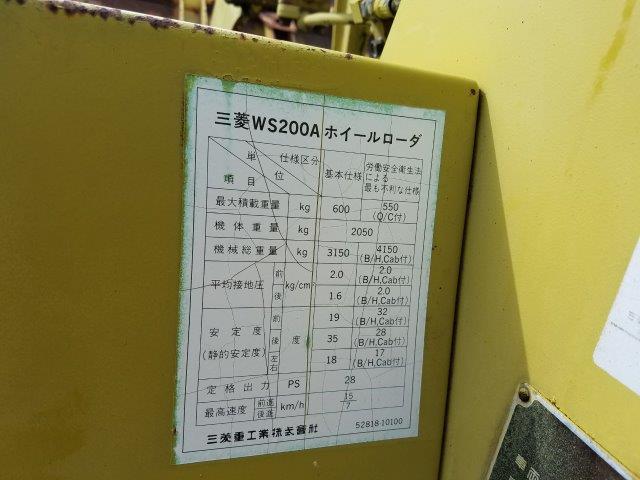 三菱WS200Aホイールローダ
単位 仕様区分 基本仕様 労働安全衛生法による最も不利な仕様
項目
最大積載重量 kg 600 550 (Q/C付)
機体重量 kg 2050
機械総重量 kg 3150 4150 (B/H,Cab付)
平均接地圧 前 kg/cm² 2.0 2.0 (B/H,Cab付)
後 1.6 2.0 (B/H,Cab付)
安定度 (静的安定度) 前 度 19 32 (B/H,Cab付)
後 35 28 (B/H,Cab付)
左右 18 17 (B/H,Cab付)
定格出力 PS 28
最高速度 前進 後進 km/h 15 7
三菱重工業株式會社 52818-10100